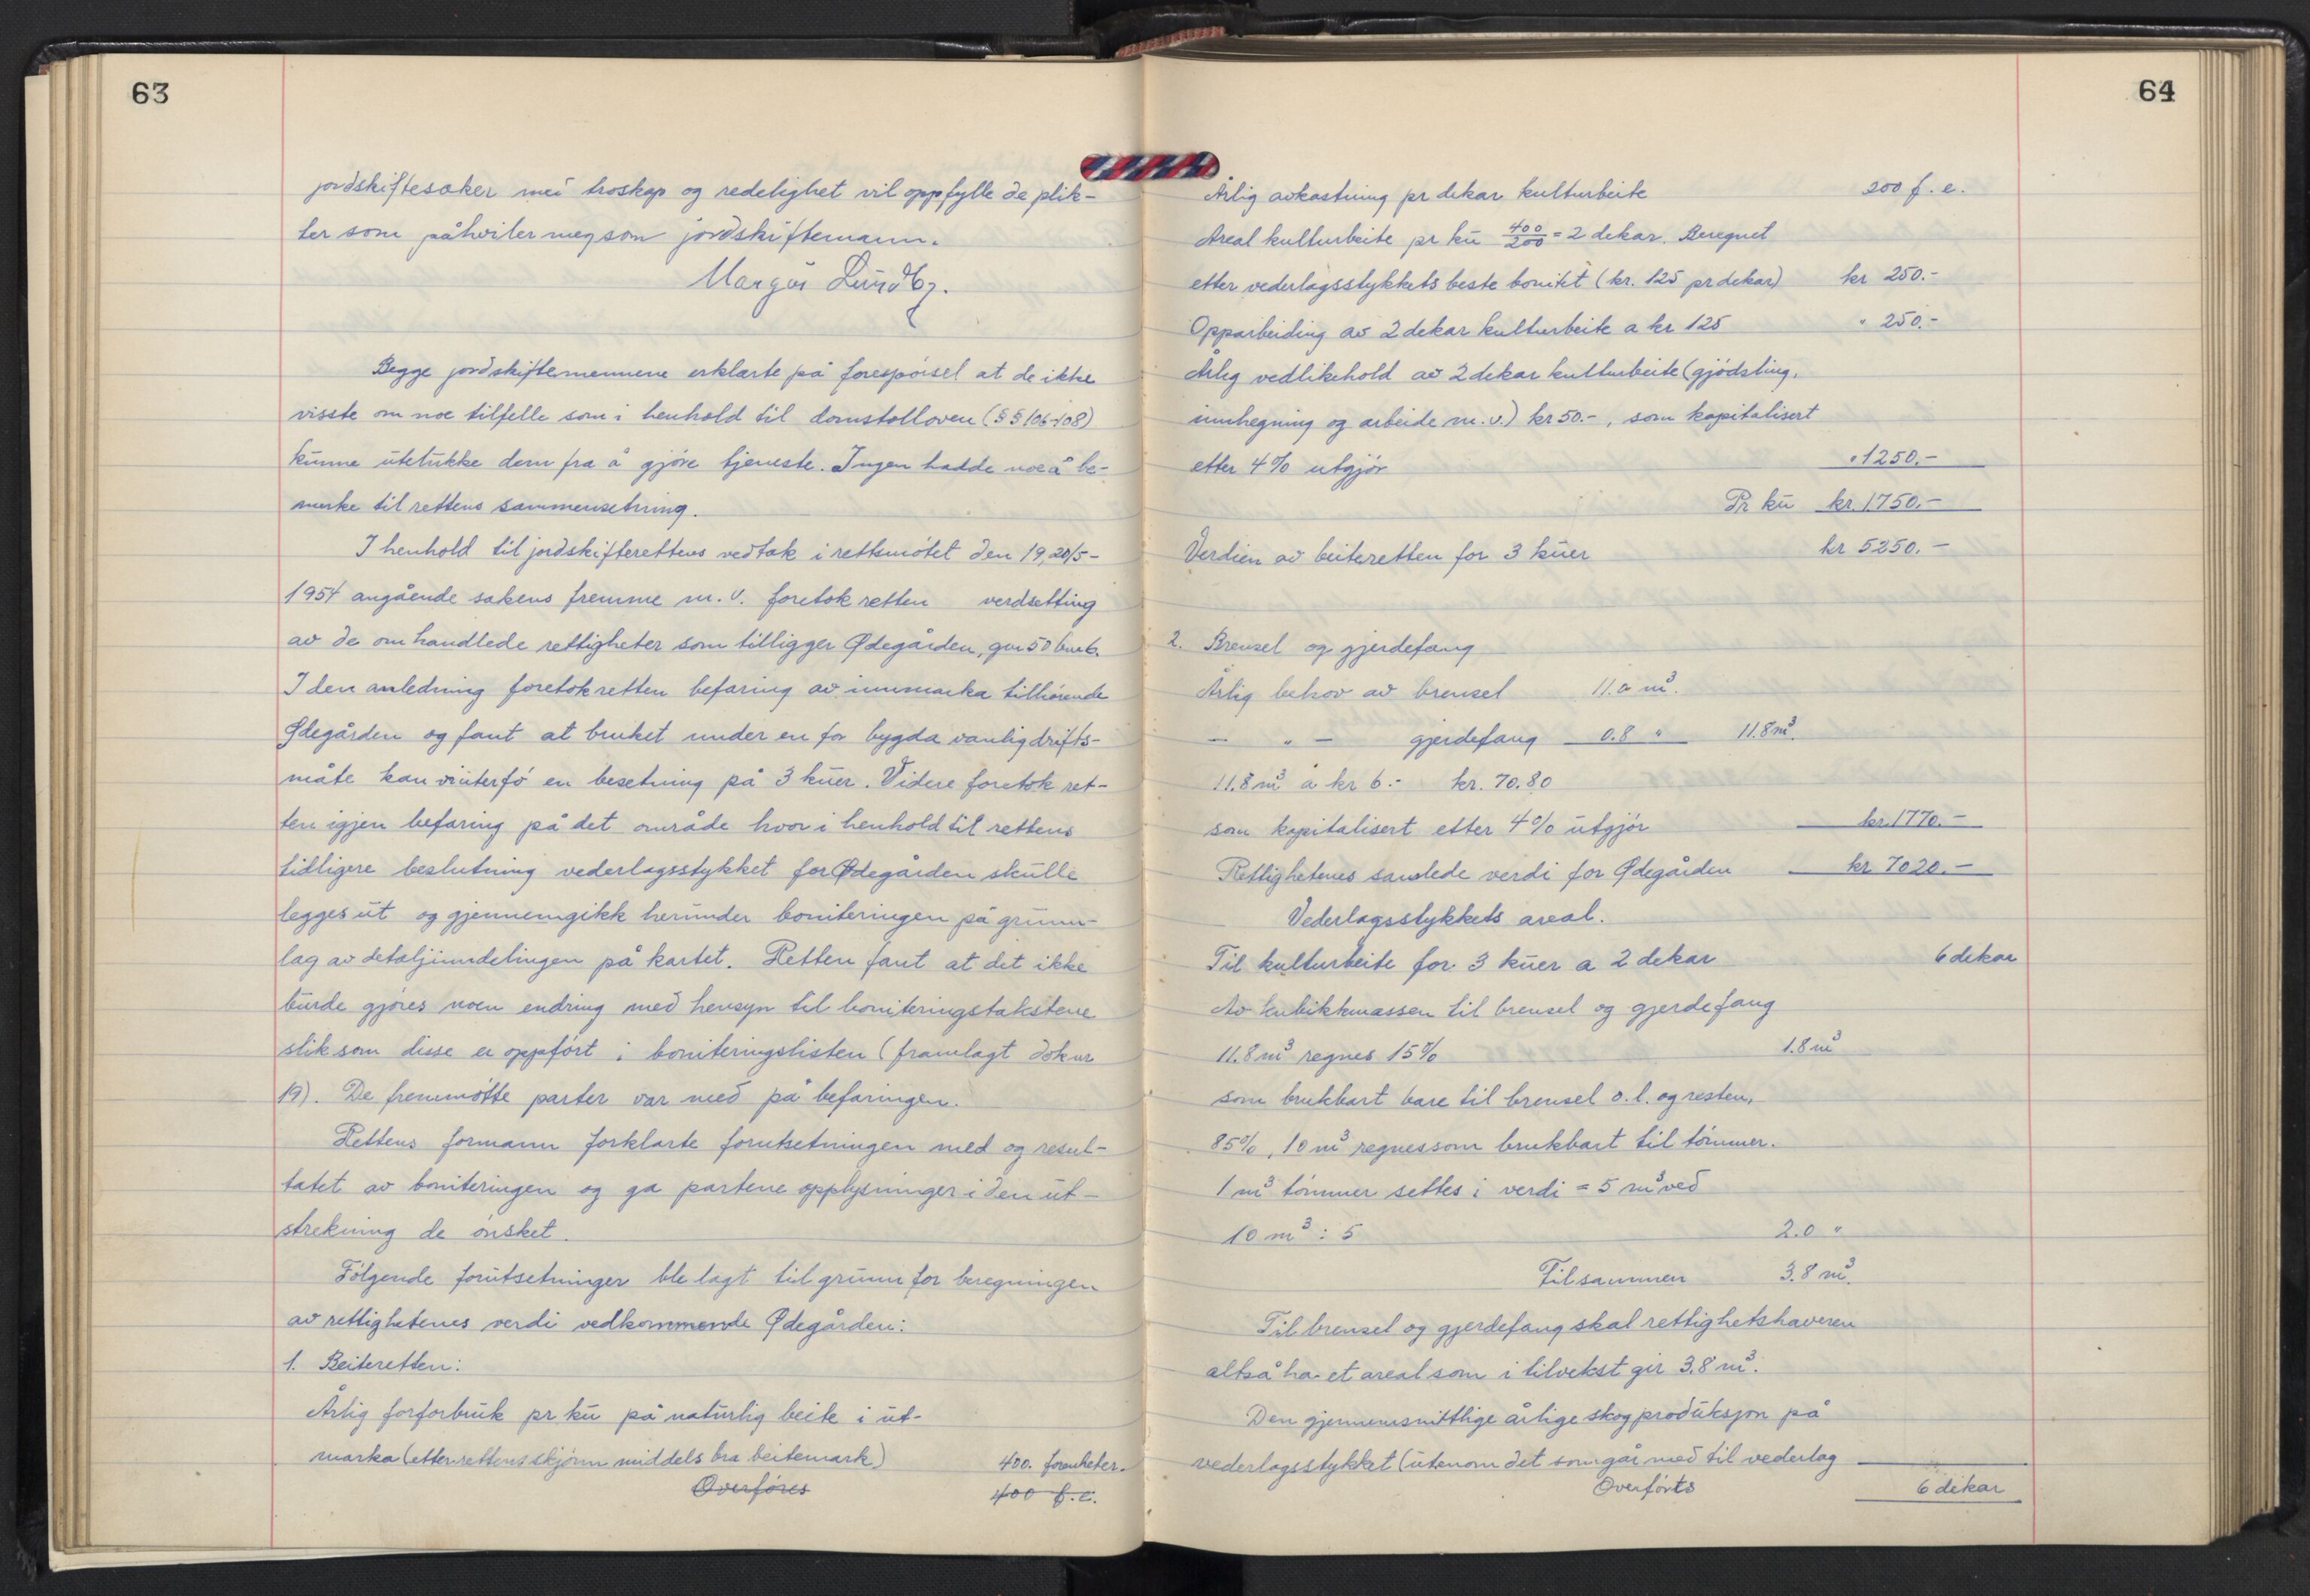 63
jordskiftesaker med troskap og redelighet vil oppfylle de plik-
ter som påhviler meg som jordskiftemann.
Begge jordskiftemennene erklærte på forespørsel at de ikke
visste om noe tilfelle som i henhold til domstolloven (§§ 106-108)
kunne utelukke dem fra å gjøre tjeneste. Ingen hadde noe å be-
merke til rettens sammensetning.
I henhold til jordskifterettens vedtak i rettsmøtet den 19, 20/5-
1954 angående sakens fremme m.v. foretok retten verdsetting
av de omhandlede rettigheter som tilligger Ødegården, gnr 50 bnr 6.
I den anledning foretok retten befaring av innmarka tilhørende
Ødegården og fant at bruket under en for bygda vanlig drifts-
måte kan vinterfø en besetning på 3 kuer. Videre foretok ret-
ten igjen befaring på det område hvor i henhold til rettens
tidligere beslutning vederlagsstykket for Ødegården skulle
legges ut og gjennemgikk herunder boniteringen på grunn-
lag av detaljinndelingen på kartet. Retten fant at det ikke
burde gjøres noen endring med hensyn til boniteringstakstene
slik som disse er oppført i boniteringslisten (framlagt dok nr
19). De fremmøtte parter var med på befaringen.
Rettens formann forklarte forutsetningen med og resul-
tatet av boniteringen og ga partene opplysninger i den ut-
strekning de ønsket.
Følgende forutsetninger ble lagt til grunn for beregningen
av rettighetenes verdi vedkommende Ødegården:
1. Beiteretten:
Årlig forforbruk pr ku på naturlig beite i ut-
marka (etter rettens skjønn middels bra beitemark) 400. forenheter.
Overføres 400 f.e.
64
Årlig avkastning pr dekar kulturbeite 200 f.e.
Areal kulturbeite pr ku 400/200 = 2 dekar. Beregnet
etter vederlagsstykkets beste bonitet (kr. 125 pr dekar) kr 250.-
Opparbeiding av 2 dekar kulturbeite a kr 125 " 250.-
Årlig vedlikehold av 2 dekar kulturbeite (gjødsling,
innhegning og arbeide m.v.) kr 50.-, som kapitalisert
etter 4% utgjør " 1250.-
Pr ku kr. 1750.-
Verdien av beiteretten for 3 kuer kr 5250.-
2. Brensel og gjerdefang
Årlig behov av brensel 11.0 m³.
- " - gjerdefang 0.8 " 11.8 m³.
11.8 m³ a kr 6.- kr. 70.80
som kapitalisert etter 4% utgjør kr. 1770.-
Rettighetenes samlede verdi for Ødegården kr 7020.-
Vederlagsstykkets areal.
Til kulturbeite for 3 kuer a 2 dekar 6 dekar
Av kubikkmassen til brensel og gjerdefang
11.8 m³ regnes 15% 1.8 m³
som brukbart bare til brensel o.l. og resten,
85%, 10 m³ regnes som brukbart til tømmer.
1 m³ tømmer settes i verdi = 5 m³ ved
10 m³ : 5 2.0 "
Tilsammen 3.8 m³.
Til brensel og gjerdefang skal rettighetshaveren
altså ha et areal som i tilvekst gir 3.8 m³.
Den gjennemsnittlige årlige skogproduksjon på
vederlagsstykket (utenom det som går med til vederlag
Overførts 6 dekar